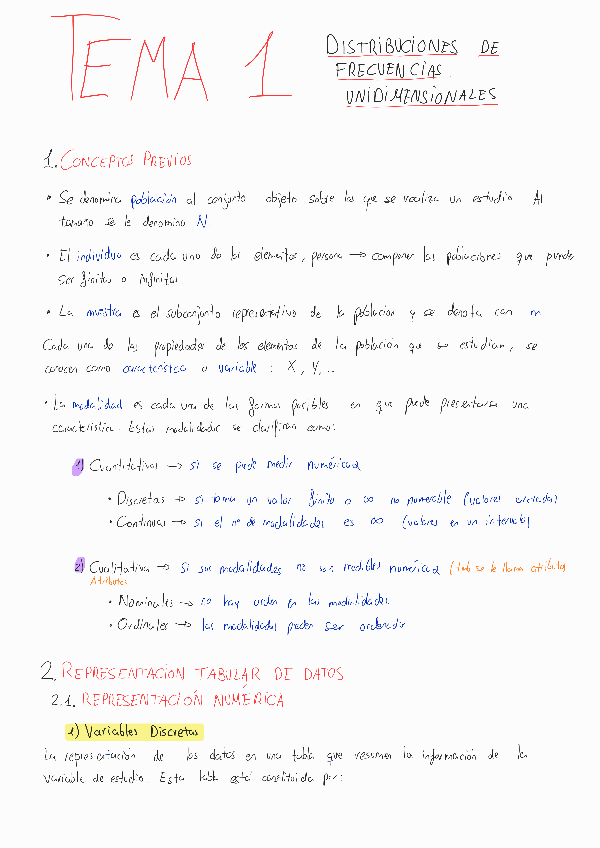 TEMA 1
DISTRIBUCIONES DE
FRECUENCIAS
UNIDIMENSIONALES
1. CONCEPTOS PREVIOS
• Se denomina población al conjunto objeto sobre los que se realiza un estudio. Al
tamaño se le denomina N
• El individuo es cada uno de los elementos, persona → componer las poblaciones que pueden
ser finitas o infinitas
• La muestra es el subconjunto representativo de la población y se denota con n
Cada una de las propiedades de los elementos de la población que se estudian, se
conocen como característica o variable : X, Y, ..
• La modalidad es cada una de las formas posibles en que puede presentarse una
característica. Estas modalidades se clasifican como:
1) Cuantitativas → si se puede medir numérica
• Discretas → si toma un valor finito o ∞ no numerable (valores)
• Continuas → si el nº de modalidades es ∞ (valores en un intervalo)
2) Cualitativa → si sus modalidades no son medibles numérica (tmb se le llama atributos
Atributos
• Nominales → no hay orden en las modalidades
• Ordinales → las modalidades pueden ser ordenadas
2. REPRESENTACION TABULAR DE DATOS
2.1. REPRESENTACIÓN NUMÉRICA
1) Variables Discretas
La representación de los datos en una tabla que resumen la información de la
variable de estudio. Esta tabla está constituida por: